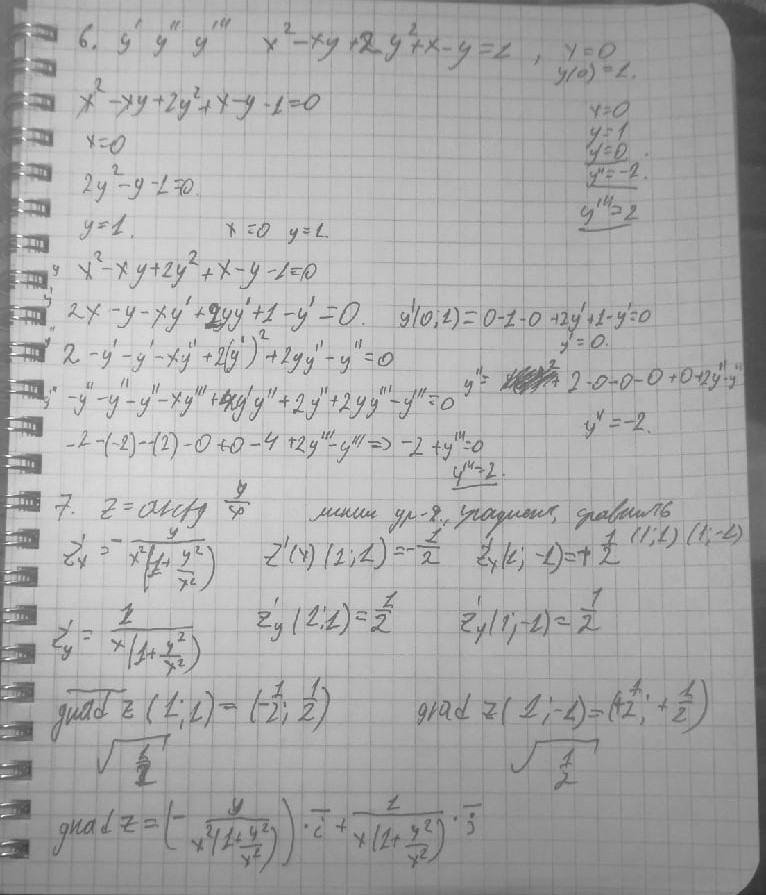 6. y' y'' y''' x² - xy + 2y² + x - y = 1, x=0
y(0) = 1.
x² - xy + 2y² + x - y - 1 = 0
x=0
x=0
y=1
y=0.
2y² - y - 1 = 0.
y''=-2.
y'''=2
y=1. x=0 y=1
y x² - xy + 2y² + x - y - 1 = 0
y' 2x - y - xy' + 2yy' + 1 - y' = 0. y'(0,1) = 0-1-0+2y'+1-y'=0
y'=0.
y'' 2 - y' - y' - xy'' + 2(y')² + 2yy'' - y'' = 0
y''= 2-0-0-0+0+2y''-y''
y''' -y'' - y'' - y'' - xy''' + 4y'y'' + 2y'' + 2yy''' - y''' = 0
y''=-2.
-2-(-2)--(2)-0+0-4+2y'''-y''' => -2+y'''=0
y'''=2.
7. z = arctg y/x градиент, сравнить
(1;1) (1;-1)
z'x = - y/(x²(1+y²/x²)) z'(x) (1;1) = -1/2 z'x(1;-1) = +1/2
z'y = 1/(x(1+y²/x²)) z'y(1;1) = 1/2 z'y(1;-1) = 1/2
grad z (1;1) = (-1/2; 1/2) grad z (1;-1) = (+1/2; +1/2)
√(1/2) √(1/2)
grad z = (- y/(x²(1+y²/x²))) · i + 1/(x(1+y²/x²)) · j